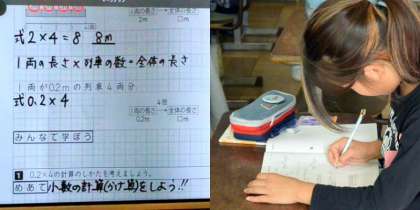 4両
1両の長さ 全体の長さ
2m □m
式 2×4=8 8m
1両の長さ×列車の数=全体の長さ
1両が0.2mの列車4両分
4倍
式 0.2×4
1両の長さ 全体の長さ
0.2m □m
みんなで学ぼう
1 0.2×4の計算のしかたを考えましょう。
めあて 小数の計算(かけ算)をしよう!!